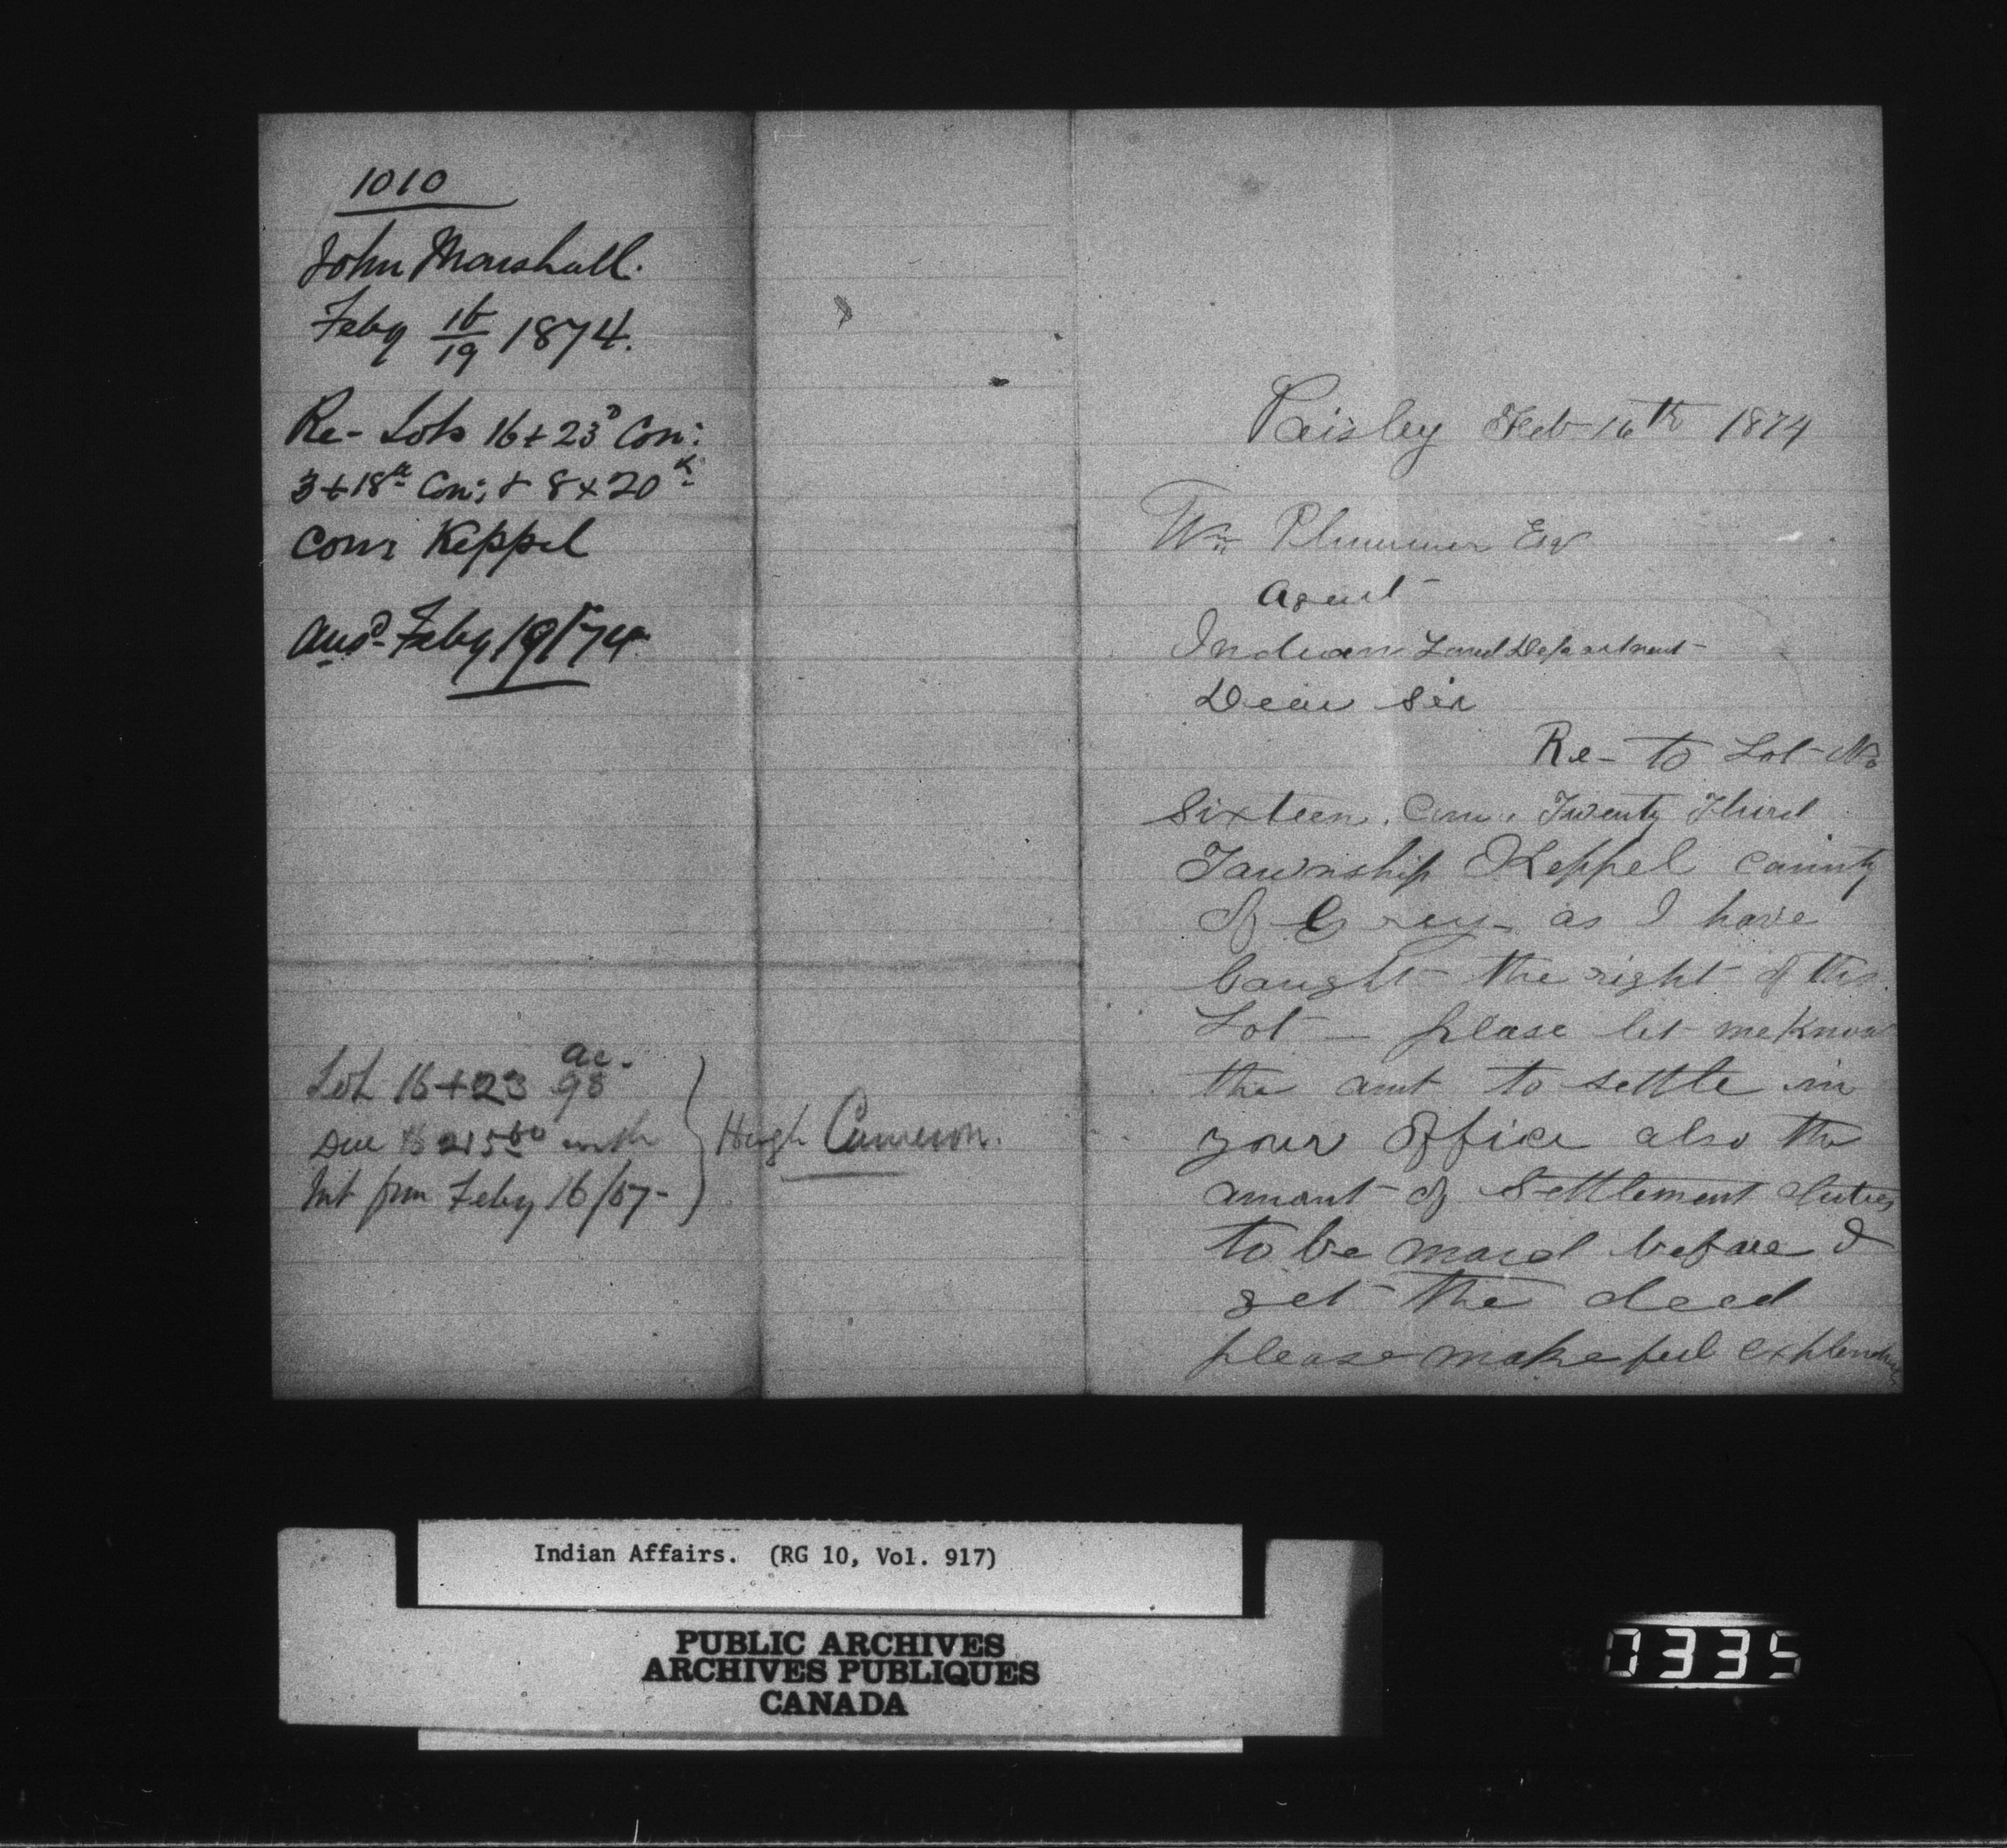 1010
John Marshall.
Feby 16/19 1874.
Re- Lots 16 + 23d Con:
3 + 18th Con; & 8 + 20th
Con: Keppel
Ansd Feby 19/74
ac.
Lot 16 + 23 98
Due $215.60 with
Int from Feby 16/57-
Hugh Cameron.
Paisley Feb 16th 1874
Wm Plummer Esq
Agent
Indian Land Department
Dear Sir
Re- to Lot No
Sixteen. Con. Twenty Third
Township Keppel County
of Grey- as I have
baught the right of this
Lot - plase let me know
the amt to settle in
your Office also the
amont of Settlement duties
to be maid before I
get the deed
please make full
Indian Affairs. (RG 10, Vol. 917)
PUBLIC ARCHIVES
ARCHIVES PUBLIQUES
CANADA
0335